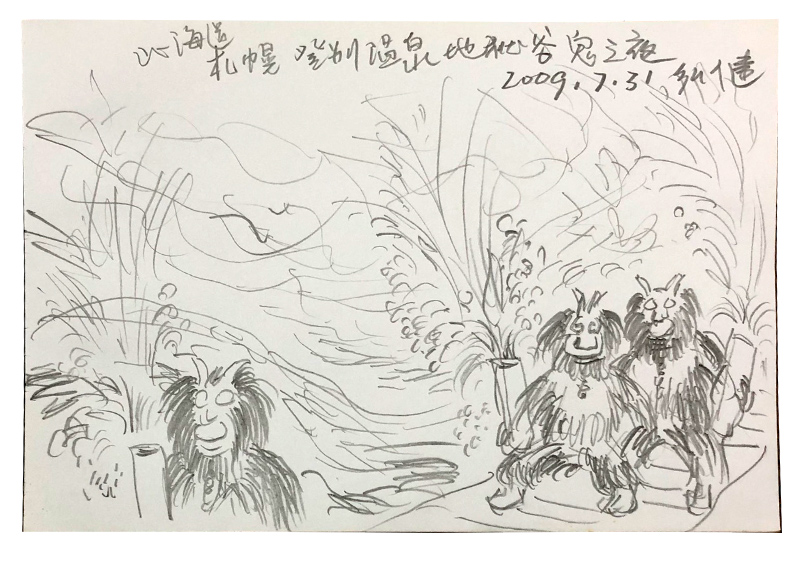 北海道
札幌 登别温泉地狱谷鬼之夜
2009.7.31